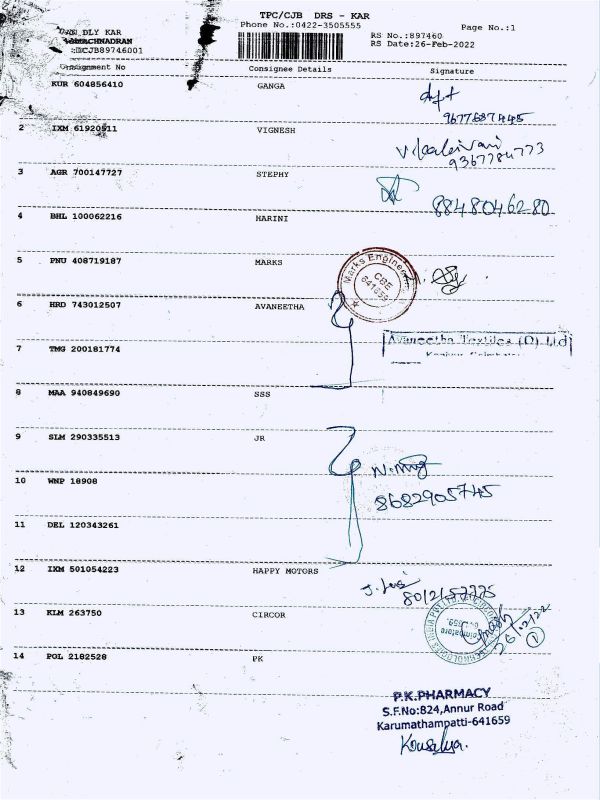 TPC/CJB DRS - KAR
Phone No.:0422-3505555
Page No.:1
RS No.:897460
RS Date:26-Feb-2022
DLY KAR
CJB89746001
Consignment No Consignee Details Signature
KUR 604856410 GANGA
9677687445
2 IXM 61920911 VIGNESH
9367784773
3 AGR 700147727 STEPHY
8848046280
4 BHL 100062216 HARINI
5 PNU 408719187 MARKS
Marks Engineer
CBE
641 659
6 HRD 743012507 AVANEETHA
Avaneetha Textiles (P) Ltd
7 TMG 200181774
8 MAA 940849690 SSS
9 SLM 290335513 JR
8682905745
10 WNP 18908
11 DEL 120343261
12 IXM 501054223 HAPPY MOTORS
13 KLM 263750 CIRCOR
26/02/22
14 POL 2182528 PK
P.K.PHARMACY
S.F.No:824,Annur Road
Karumathampatti-641659
Kousalya.